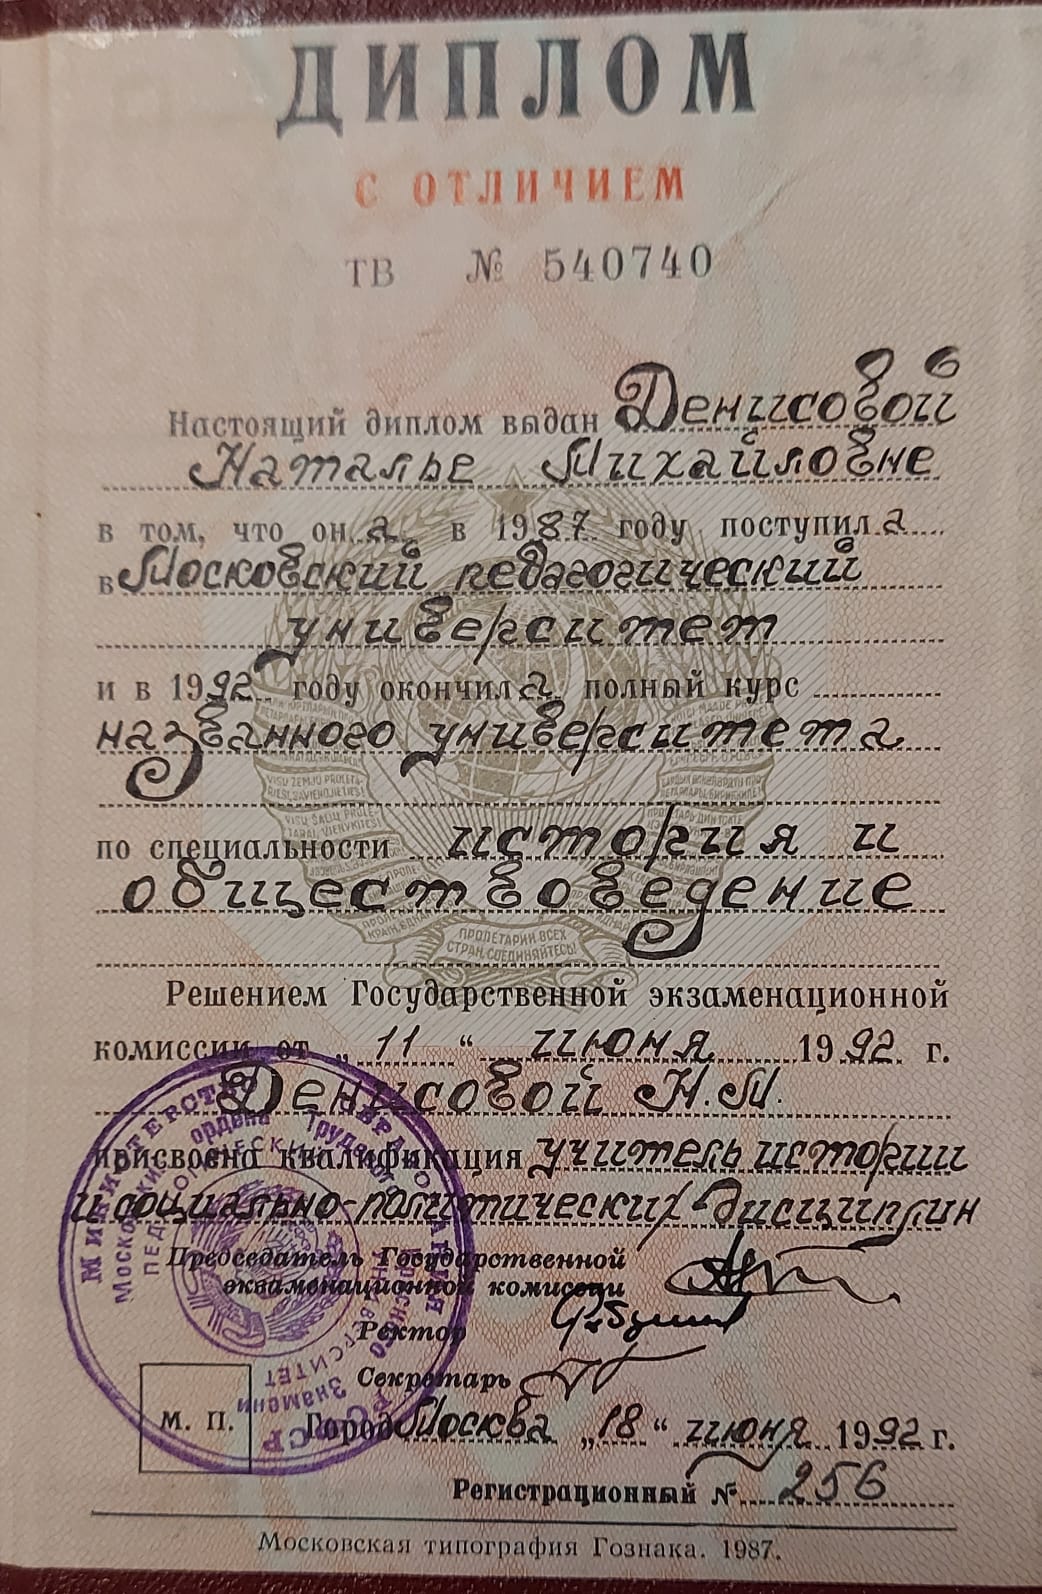 ДИПЛОМ
С ОТЛИЧИЕМ
ТВ № 540740
Настоящий диплом выдан Денисовой
Наталье Михайловне
в том, что он а в 1987 году поступил а
в Московский педагогический
университет
и в 1992 году окончил а полный курс
названного университета
по специальности история и
обществоведение
Решением Государственной экзаменационной
комиссии от „ 11 “ июня 1992 г.
Денисовой Н.М.
присвоена квалификация учитель истории
и социально-политических дисциплин
Председатель Государственной
экзаменационной комиссии
Ректор
Секретарь
М. П.
Город Москва „18“ июня 1992 г.
Регистрационный № 256
Московская типография Гознака. 1987.
ПРОЛЕТАРИИ ВСЕХ
СТРАН, СОЕДИНЯЙТЕСЬ!
VISU ZEMJU PROLETA-
RIEŠI, SAVIENOJIETIES!
VISŲ ŠALIŲ PROLE-
TARAI, VIENYKITĖS!